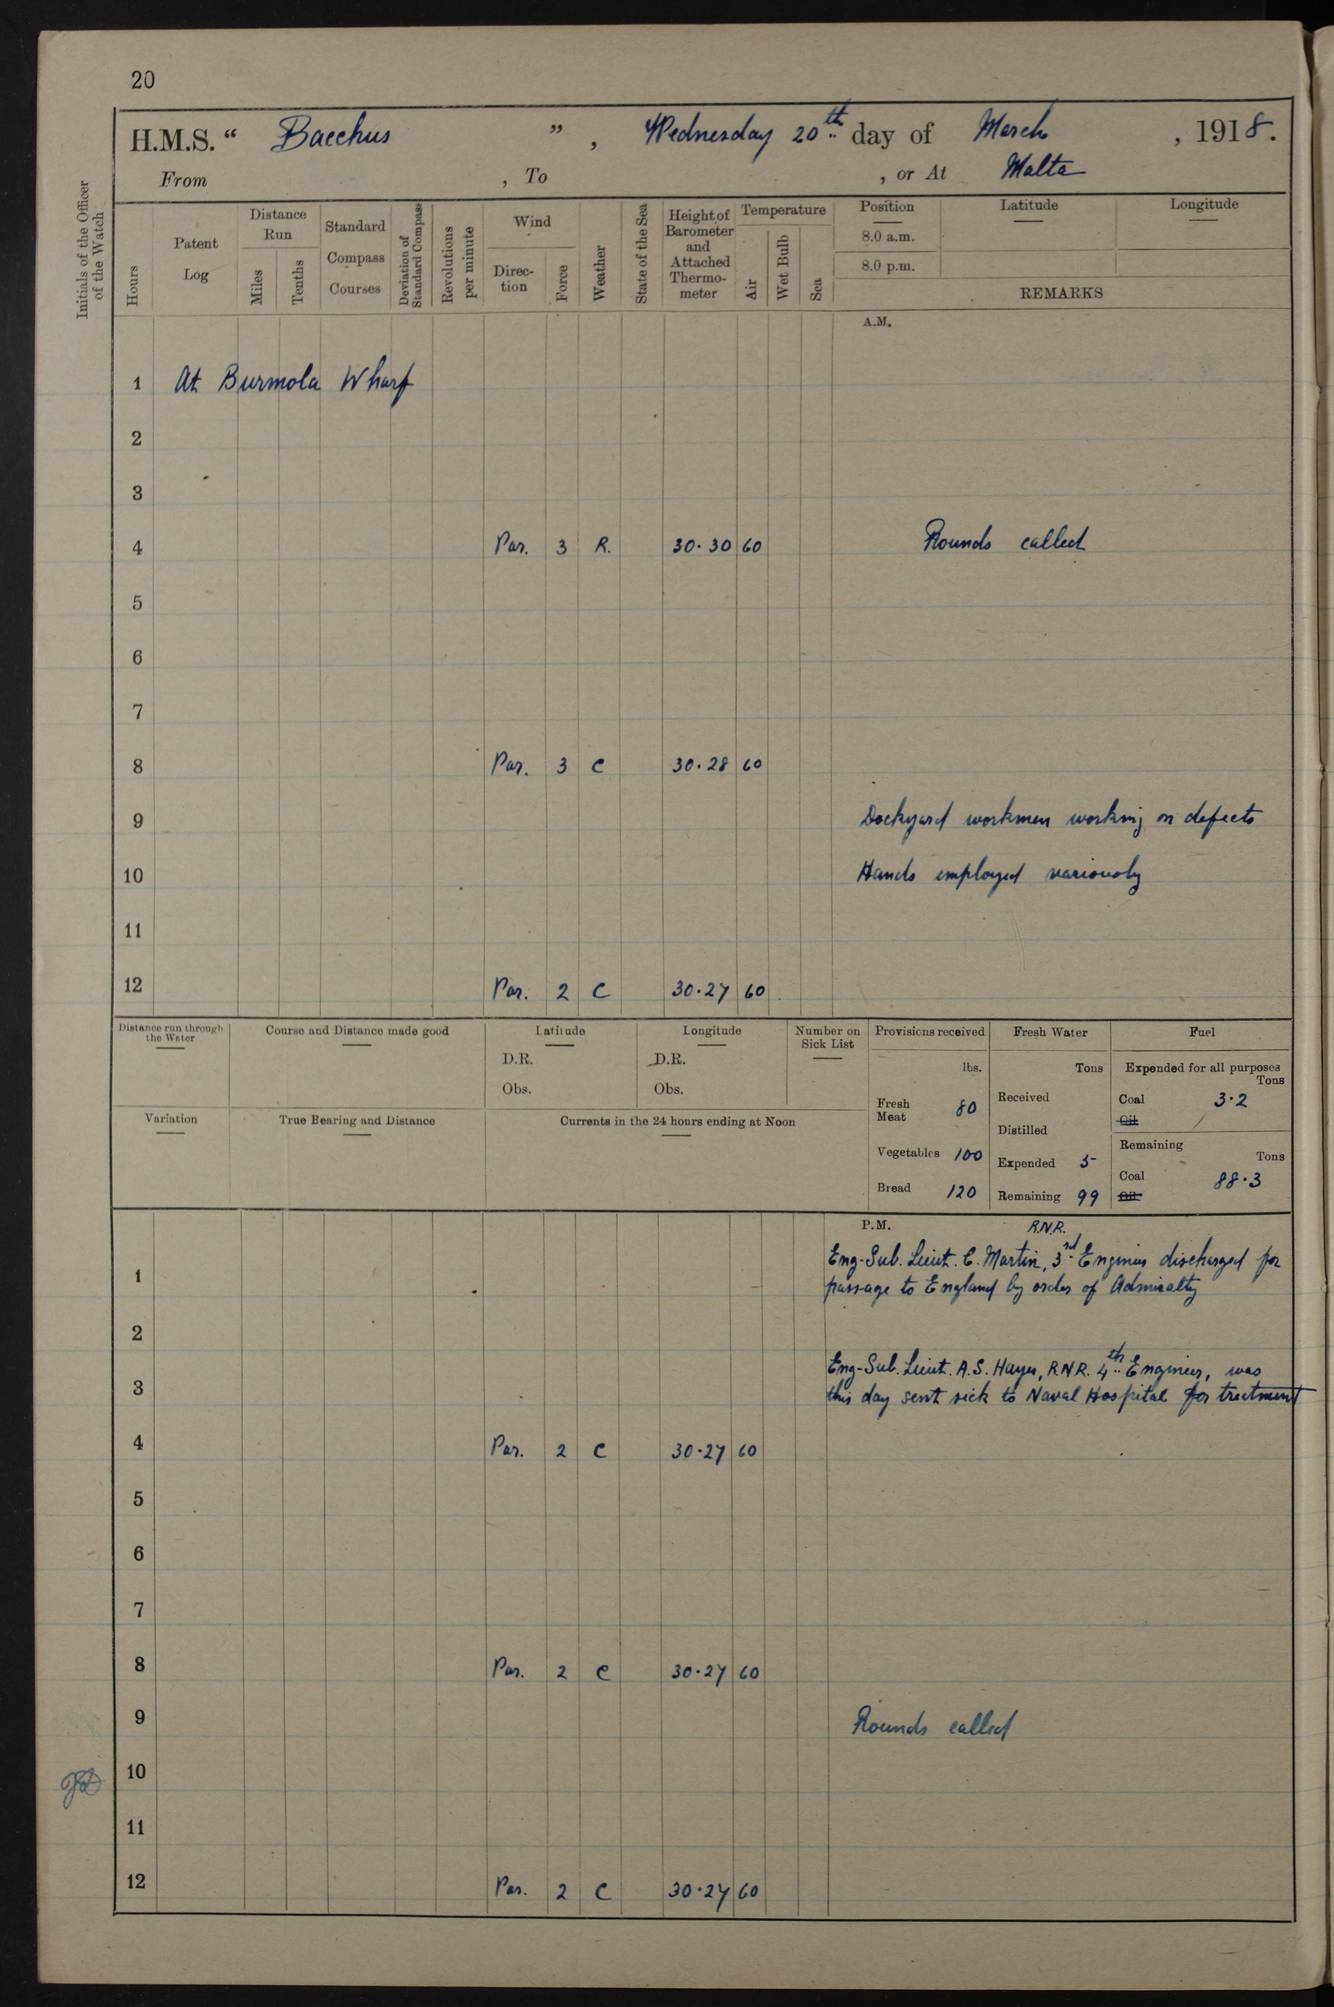 20
H.M.S. “ Bacchus ” , Wednesday 20th day of March , 1918.
From , To , or At Malta
Initials of the Officer of the Watch
Hours
Patent Log
Distance Run
Miles
Tenths
Standard Compass Courses
Deviation of Standard Compass
Revolutions per minute
Wind
Direc-tion
Force
Weather
State of the Sea
Height of Barometer and Attached Thermo-meter
Temperature
Air
Wet Bulb
Sea
Position Latitude Longitude
8.0 a.m.
8.0 p.m.
REMARKS
A.M.
1 At Burmola Wharf
2
3
4 Par. 3 R. 30.30 60 Rounds called
5
6
7
8 Par. 3 C 30.28 60
9 Dockyard workmen working on defects
10 Hands employed variously
11
12 Par. 2 C 30.27 60
Distance run through the Water
Course and Distance made good
Latitude
D.R.
Obs.
Longitude
D.R.
Obs.
Number on Sick List
Provisions received
lbs.
Fresh Meat 80
Vegetables 100
Bread 120
Fresh Water
Tons
Received
Distilled
Expended 5
Remaining 99
Fuel
Expended for all purposes
Tons
Coal 3.2
Oil
Remaining
Tons
Coal 88.3
Oil
Variation
True Bearing and Distance
Currents in the 24 hours ending at Noon
P.M. R.N.R.
Eng-Sub. Lieut. C. Martin, 3rd Engineer discharged for
1 passage to England by order of Admiralty
2
Eng-Sub. Lieut. A.S. Hayes, R.N.R. 4th Engineer, was
3 this day sent sick to Naval Hospital for treatment
4 Par. 2 C 30.27 60
5
6
7
8 Par. 2 C 30.27 60
9 Rounds called
10
11
12 Par. 2 C 30.27 60